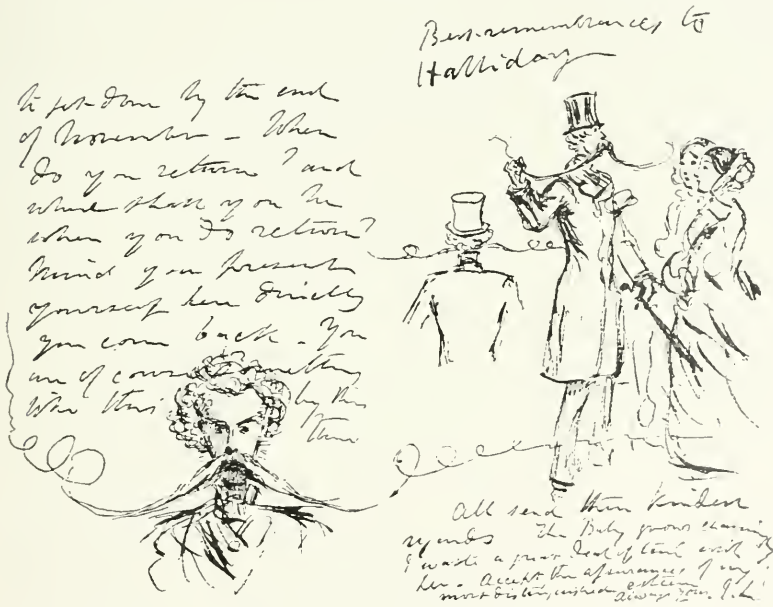 to get done by the end
of November – When
do you return? and
where shall you be
when you do return?
Mind you present
yourself here directly
you come back – You
are of course something
like this by this
time
Best remembrances to
Halliday
All send their kindest
regards The Baby grows
I waste a great deal of time with
her – Accept the assurances of my
most distinguished esteem
always yours